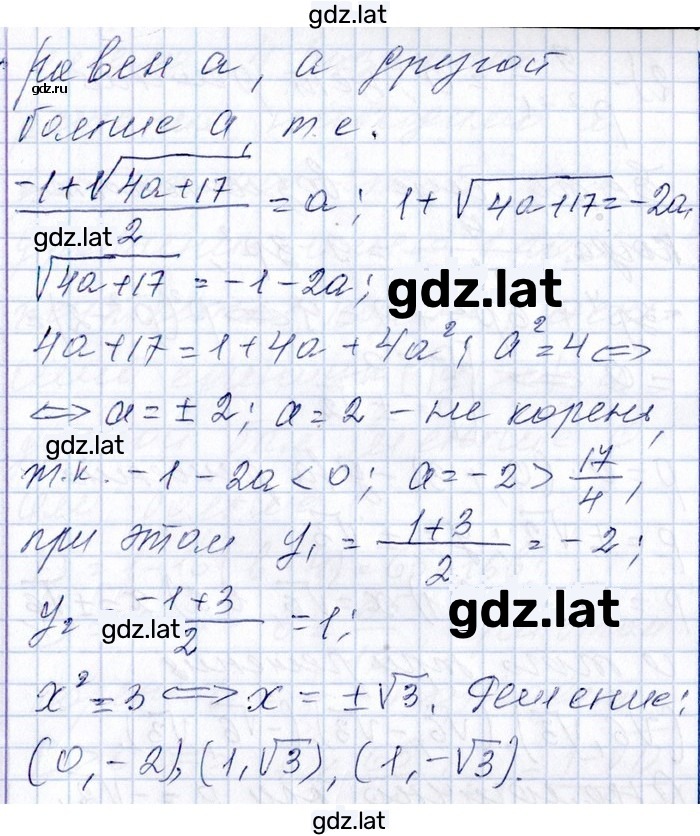 gdz.lat
равен a, а другой
gdz.ru
больше a, т.е.
-1+√(4a+17)/2 = a; 1+√(4a+17) = -2a,
gdz.lat
√(4a+17) = -1-2a;
gdz.lat
4a+17=1+4a+4a²; a²=4 ⇔
⇔ a=±2; a=2 - не корень,
gdz.lat
т.к. -1-2a<0; a=-2> 17/4,
при этом y₁ = 1+3/2 = -2;
y₂ -1+3/2 =1;
gdz.lat
gdz.lat
x²=3 ⇔ x=±√3. Решение:
(0,-2), (1,√3), (1,-√3).
gdz.lat